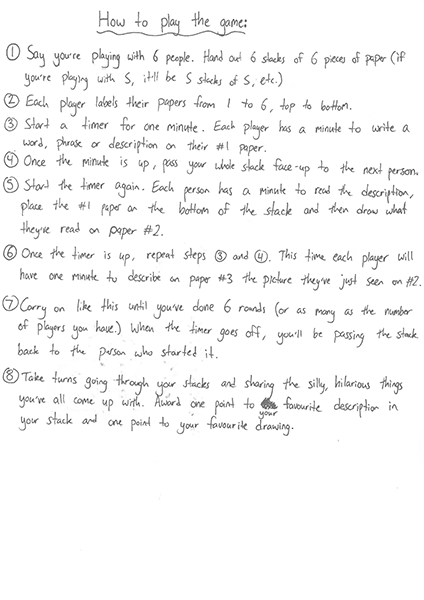 How to play the game:
① Say you're playing with 6 people. Hand out 6 stacks of 6 pieces of paper (if
you're playing with 5, it'll be 5 stacks of 5, etc.)
② Each player labels their papers from 1 to 6, top to bottom.
③ Start a timer for one minute. Each player has a minute to write a
word, phrase or description on their #1 paper.
④ Once the minute is up, pass your whole stack face-up to the next person.
⑤ Start the timer again. Each person has a minute to read the description,
place the #1 paper on the bottom of the stack and then draw what
they've read on paper #2.
⑥ Once the timer is up, repeat steps ③ and ④. This time each player will
have one minute to describe on paper #3 the picture they've just seen on #2.
⑦ Carry on like this until you've done 6 rounds (or as many as the number
of players you have.) When the timer goes off, you'll be passing the stack
back to the person who started it.
⑧ Take turns going through your stacks and sharing the silly, hilarious things
you've all come up with. Award one point to your favourite description in
your stack and one point to your favourite drawing.